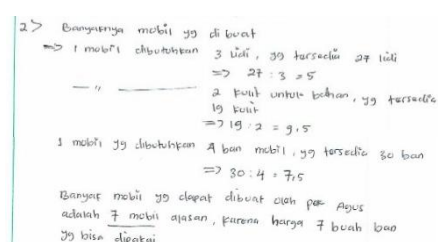 2> Banyaknya mobil yg di buat
=> 1 mobil dibutuhkan 3 lidi, yg tersedia 27 lidi
=> 27 : 3 = 5
— " — 2 kulit untuk bahan, yg tersedia
19 kulit
=> 19 : 2 = 9,5
1 mobil yg dibutuhkan 4 ban mobil, yg tersedia 30 ban
=> 30 : 4 = 7,5
Banyak mobil yg dapat dibuat oleh pak Agus
adalah 7 mobil alasan, karena hanya 7 buah ban
yg bisa dipakai